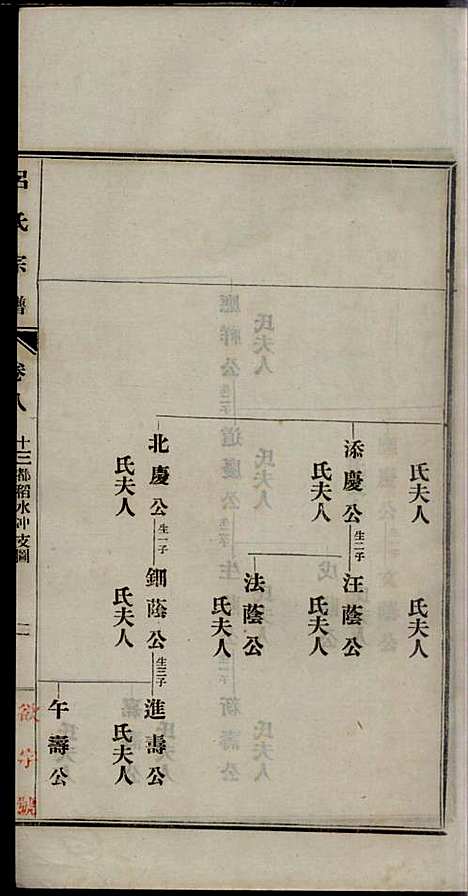 氏夫人
氏夫人
添慶公生二子汪蔭公
氏夫人
氏夫人
法蔭公
氏夫人
北慶公生一子鈿蔭公生三子進壽公
氏夫人
氏夫人
氏夫人
午壽公
呂氏宗譜
卷八
十三都稻水冲支圖
二
欲字號